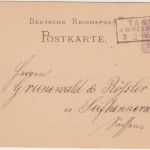 DEUTSCHE REICHSPOST
POSTKARTE.
TANN
Herren
Grunewald & Rößler
in Seifhennersd
Sachsen